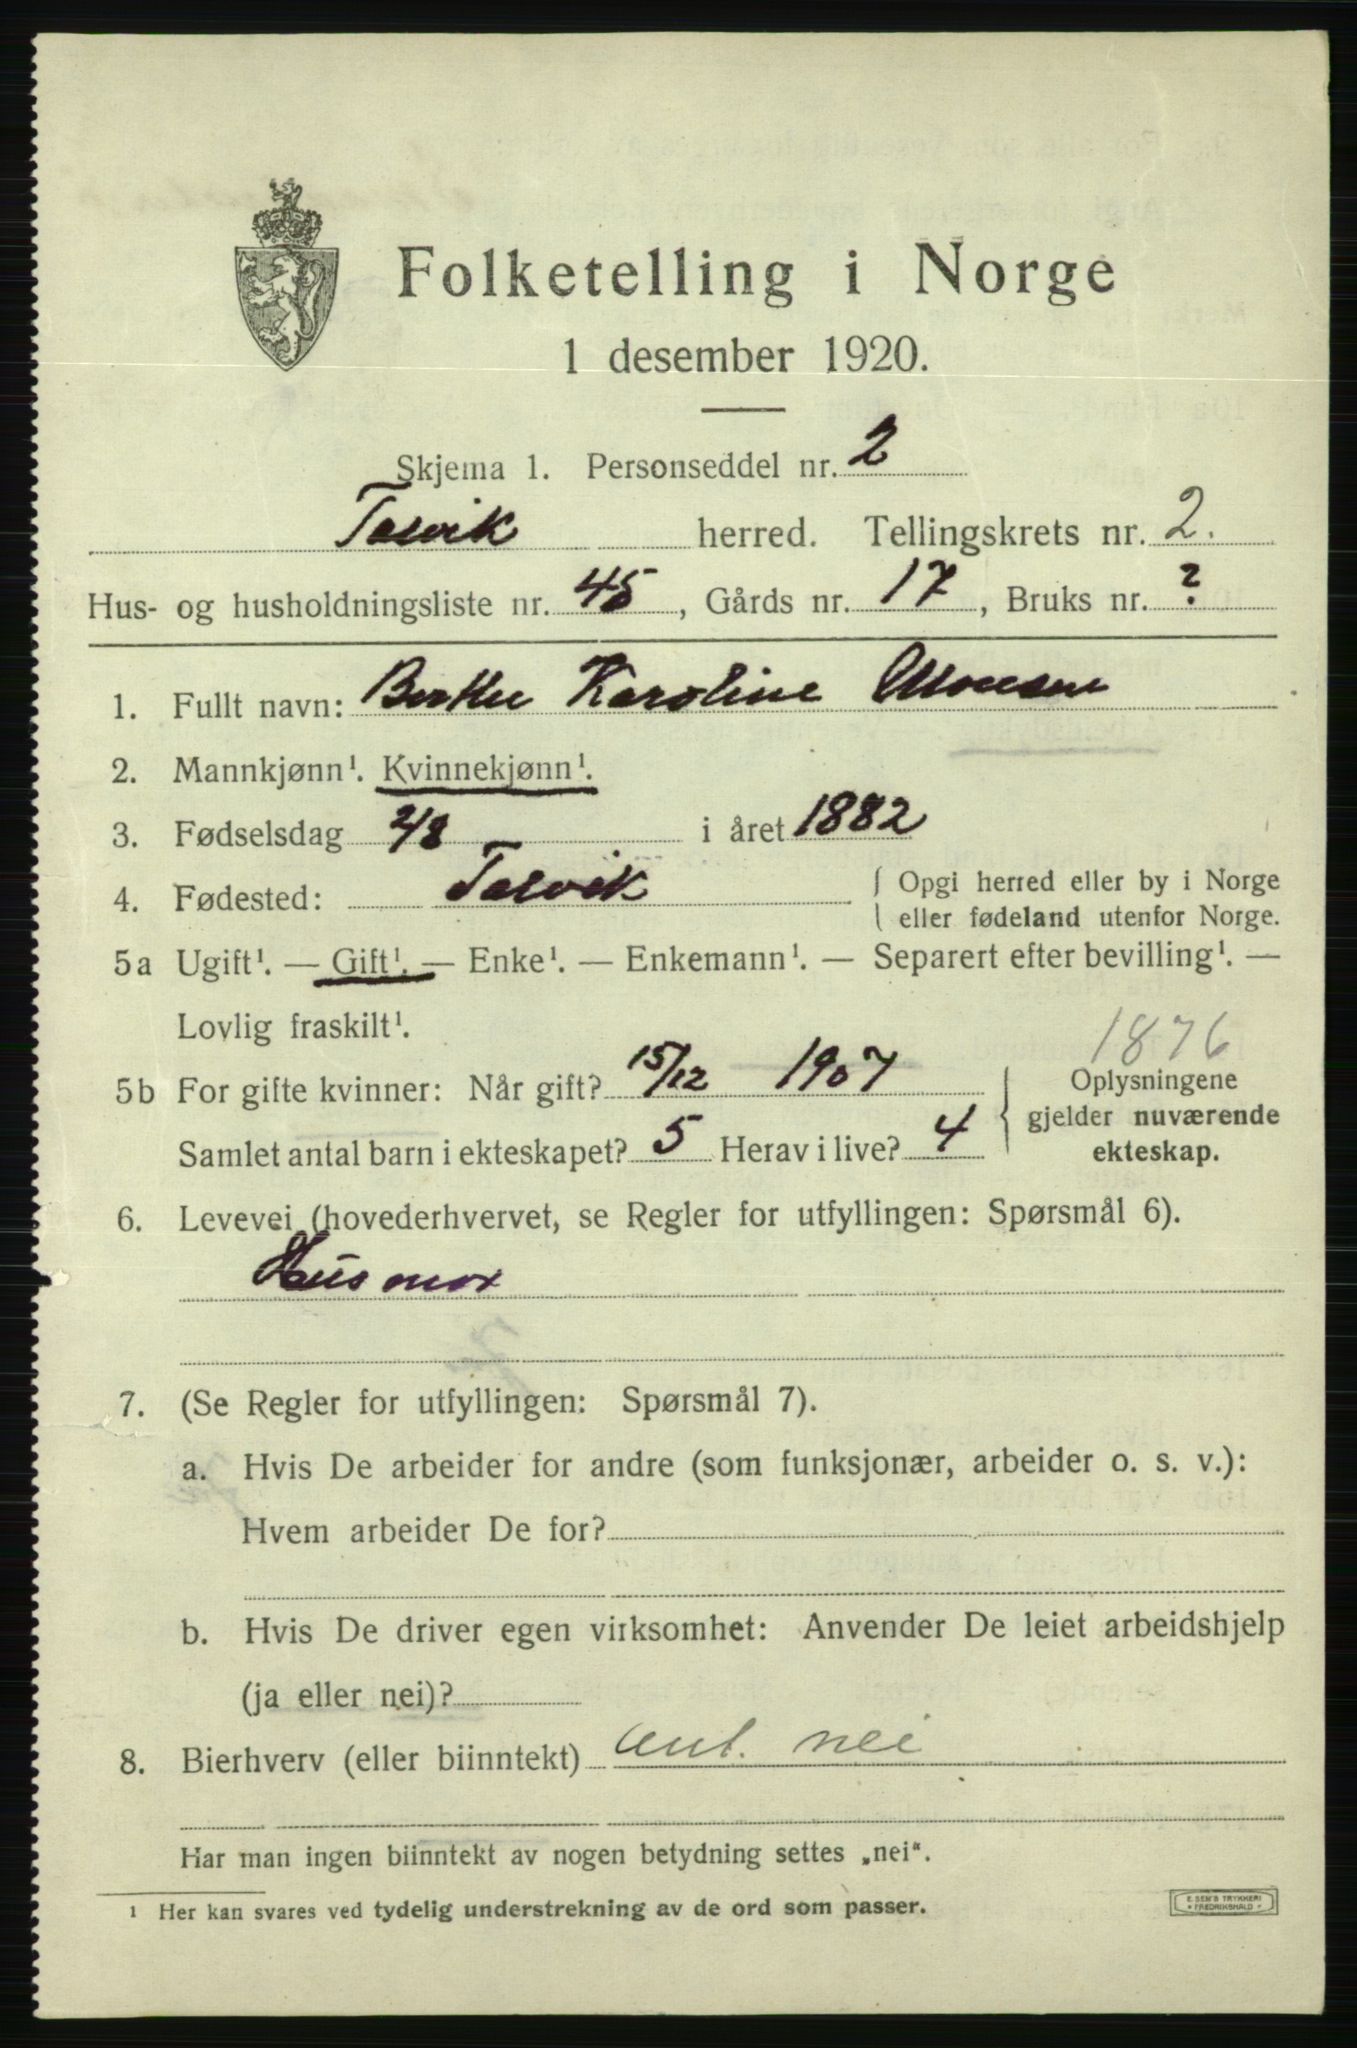 Folketelling i Norge
1 desember 1920.
Skjema 1. Personseddel nr. 2
Talvik herred. Tellingskrets nr. 2.
Hus- og husholdningsliste nr. 45, Gårds nr. 17, Bruks nr. ?
1. Fullt navn: Berthe Karoline Monsen
2. Mannkjønn¹. Kvinnekjønn¹.
3. Fødselsdag 2/8 i året 1882
4. Fødested: Talvik { Opgi herred eller by i Norge
eller fødeland utenfor Norge.
5a Ugift¹. — Gift¹. — Enke¹. — Enkemann¹. — Separert efter bevilling¹. —
Lovlig fraskilt¹.
1876
5b For gifte kvinner: Når gift? 15/12 1907 { Oplysningene
gjelder nuværende
Samlet antal barn i ekteskapet? 5 Herav i live? 4 ekteskap.
6. Levevei (hovederhvervet, se Regler for utfyllingen: Spørsmål 6).
Husmor
7. (Se Regler for utfyllingen: Spørsmål 7).
a. Hvis De arbeider for andre (som funksjonær, arbeider o. s. v.):
Hvem arbeider De for?
b. Hvis De driver egen virksomhet: Anvender De leiet arbeidshjelp
(ja eller nei)?
8. Bierhverv (eller biinntekt) Ant. nei
Har man ingen biinntekt av nogen betydning settes „nei“.
¹ Her kan svares ved tydelig understrekning av de ord som passer.
E. SEM'S TRYKKERI
FREDRIKSHALD